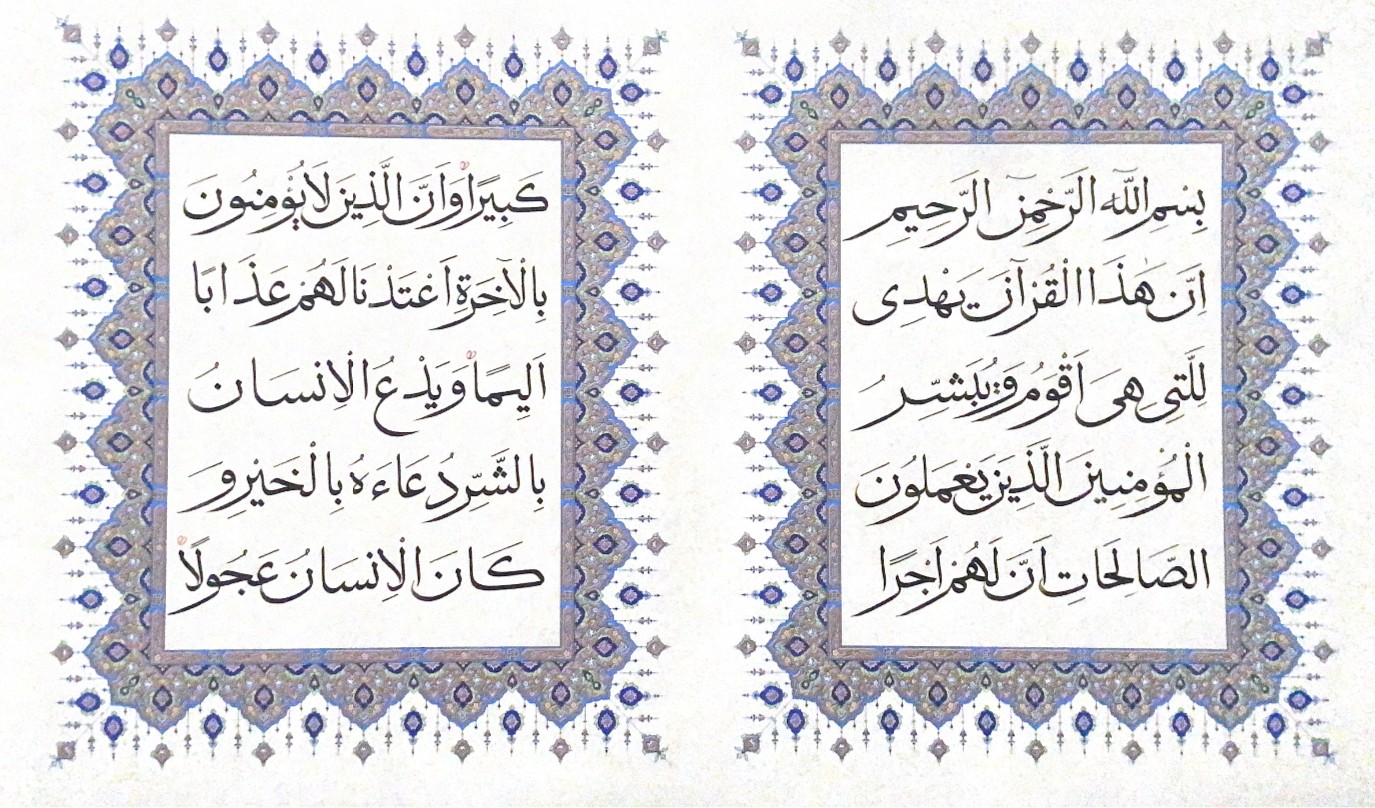 بِسْمِ اللّٰهِ الرَّحْمٰنِ الرَّحيمِ
اِنَّ هٰذَا الْقُرْآنَ يَهْدِى
لِلَّتِى هِىَ اَقْوَمُ وَيُبَشِّرُ
الْمُؤْمِنينَ الَّذينَ يَعْمَلُونَ
الصَّالِحَاتِ اَنَّ لَهُمْ اَجْرًا
كَبيرًا وَاَنَّ الَّذينَ لَايُؤْمِنُونَ
بِالْاٰخِرَةِ اَعْتَدْنَا لَهُمْ عَذَابًا
اَليمًا وَيَدْعُ الْاِنْسَانُ
بِالشَّرِّ دُعَاءَهُ بِالْخَيْرِ وَ
كَانَ الْاِنْسَانُ عَجُولًا